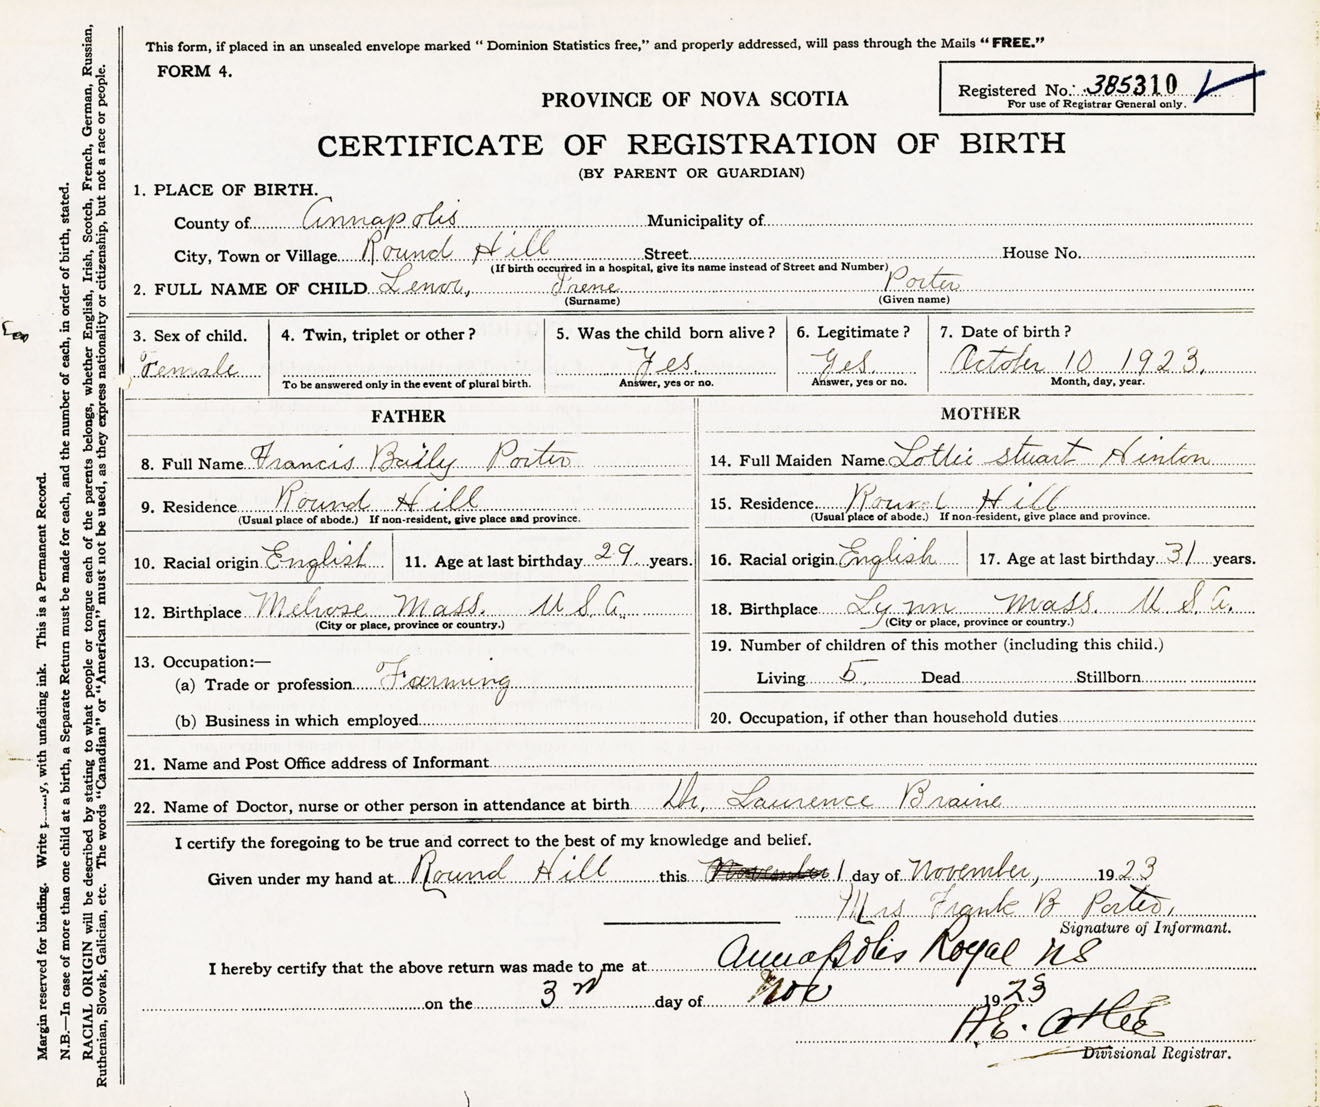 This form, if placed in an unsealed envelope marked “ Dominion Statistics free,” and properly addressed, will pass through the Mails “ FREE.”
FORM 4.
Registered No. 385310
For use of Registrar General only.
PROVINCE OF NOVA SCOTIA
CERTIFICATE OF REGISTRATION OF BIRTH
(BY PARENT OR GUARDIAN)
1. PLACE OF BIRTH.
County of Annapolis Municipality of
City, Town or Village Round Hill Street House No.
(If birth occurred in a hospital, give its name instead of Street and Number)
2. FULL NAME OF CHILD Lenor, Irene Porter
(Surname) (Given name)
3. Sex of child. 4. Twin, triplet or other? 5. Was the child born alive? 6. Legitimate? 7. Date of birth?
Female Yes. Yes. October 10 1923.
To be answered only in the event of plural birth. Answer, yes or no. Answer, yes or no. Month, day, year.
FATHER MOTHER
8. Full Name Francis Baily Porter 14. Full Maiden Name Lottie Stuart Hinton
9. Residence Round Hill 15. Residence Round Hill
(Usual place of abode.) If non-resident, give place and province. (Usual place of abode.) If non-resident, give place and province.
10. Racial origin English 11. Age at last birthday 29 years. 16. Racial origin English 17. Age at last birthday 31 years.
12. Birthplace Melrose Mass. U S A. 18. Birthplace Lynn Mass. U S A.
(City or place, province or country.) (City or place, province or country.)
13. Occupation:— 19. Number of children of this mother (including this child.)
(a) Trade or profession Farming Living 5. Dead Stillborn
(b) Business in which employed 20. Occupation, if other than household duties
21. Name and Post Office address of Informant
22. Name of Doctor, nurse or other person in attendance at birth Dr. Laurence Braine
I certify the foregoing to be true and correct to the best of my knowledge and belief.
Given under my hand at Round Hill this November 1 day of November, 1923
Mrs Frank B Porter.
Signature of Informant.
I hereby certify that the above return was made to me at Annapolis Royal NS
on the 3rd day of Nov 1923
H.E. Atlee
Divisional Registrar.
Margin reserved for binding. Write with unfading ink. This is a Permanent Record.
N.B.—In case of more than one child at a birth, a Separate Return must be made for each, and the number of each, in order of birth, stated.
RACIAL ORIGIN will be described by stating to what people or tongue each of the parents belongs, whether English, Irish, Scotch, French, German, Russian,
Ruthenian, Slovak, Galician, etc. The words “Canadian” or “American” must not be used, as they express nationality or citizenship, but not a race or people.